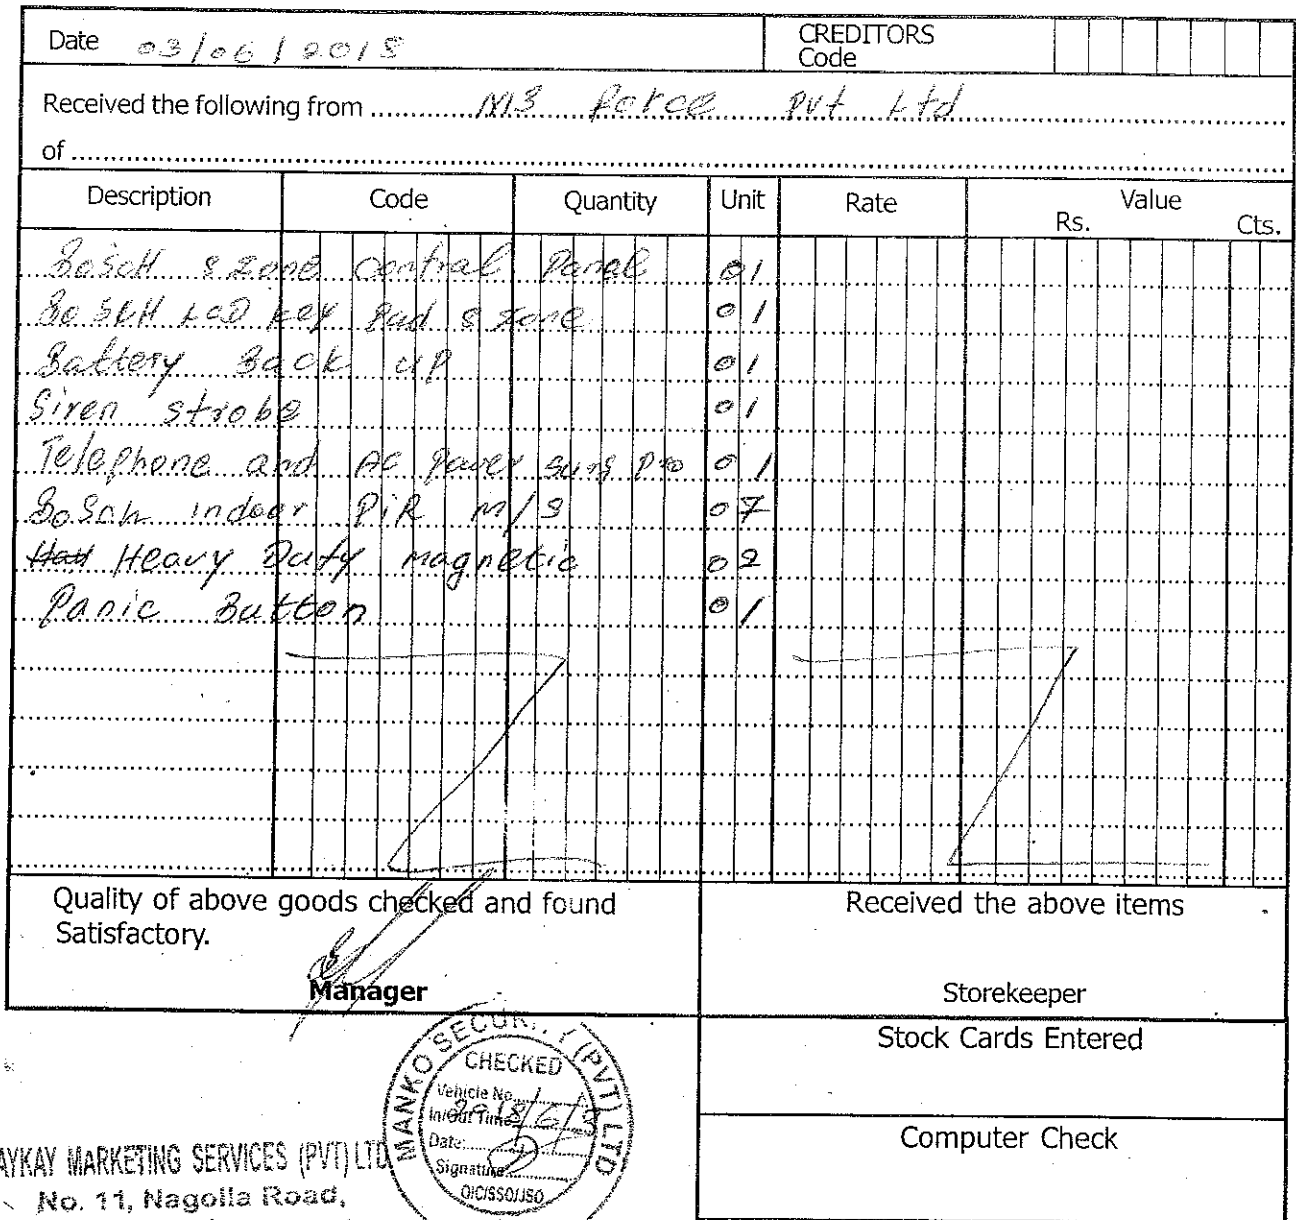 Date 03/06/2018 CREDITORS Code
Received the following from M3 Force Pvt Ltd
of
Description Code Quantity Unit Rate Value Rs. Cts.
BoSCH 8 Zone Control Panel 01
BoSCH LCD Key Pad 8 Zone 01
Battery Back UP 01
Siren Strobe 01
Telephone and AC Power surg Pro 01
BoSch indoor PiR M/S 07
Heavy Duty Magnetic 02
Panic Button 01
Quality of above goods checked and found
Satisfactory.
Manager
Received the above items
Storekeeper
Stock Cards Entered
Computer Check
MANKO SECUR.. Y (PVT) LTD
CHECKED
Vehicle No
In/Out Time
Date:
Signature
OIC/SSO/JSO
AYKAY MARKETING SERVICES (PVT) LTD
No. 11, Nagolla Road,